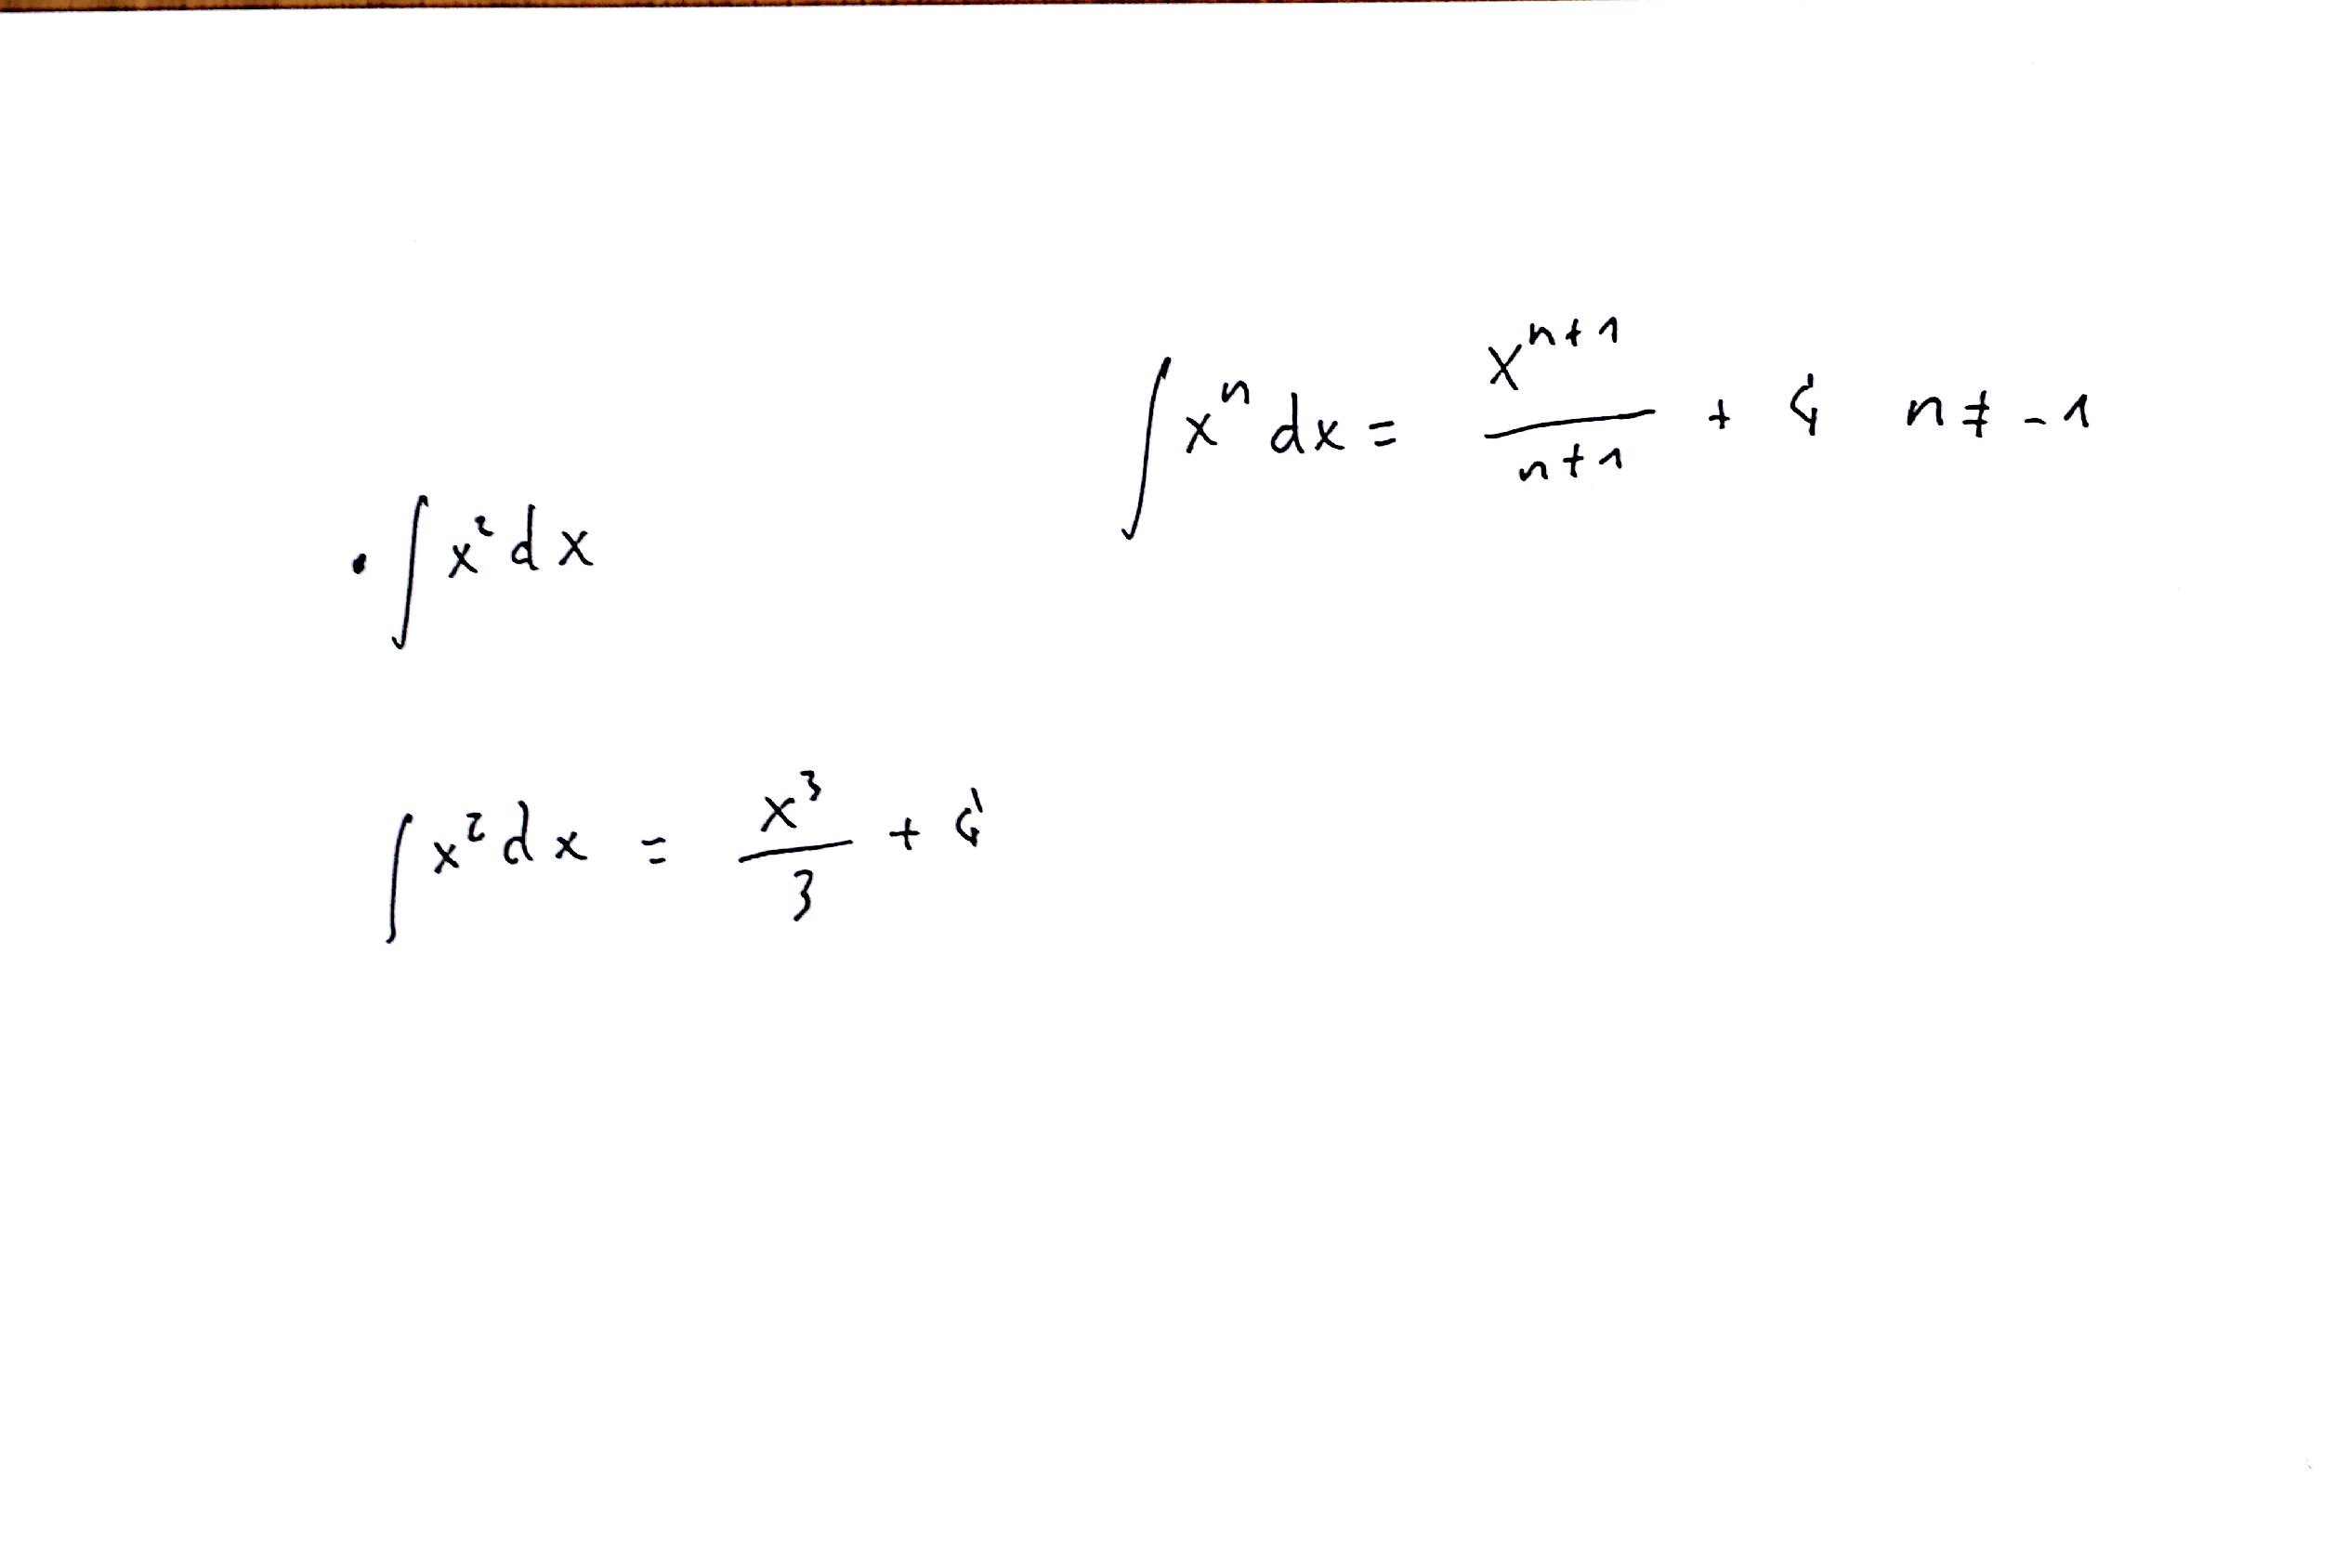 ∫ xⁿ dx = xⁿ⁺¹ / n+1 + C, n ≠ -1
• ∫ x² dx
∫ x² dx = x³ / 3 + C